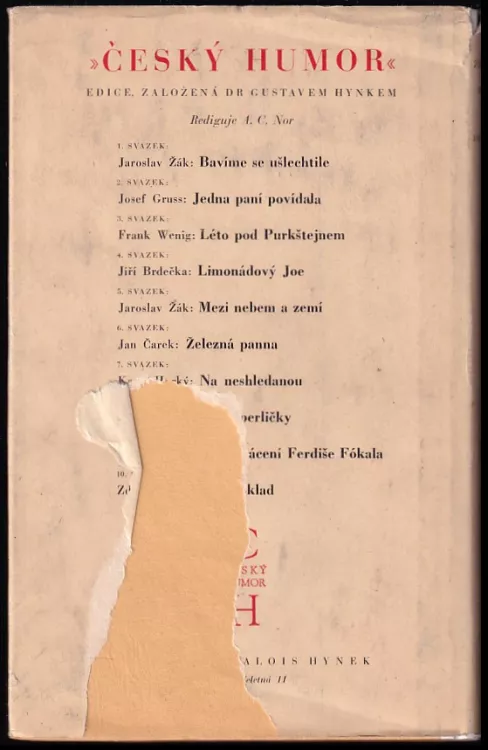 »ČESKÝ HUMOR«
EDICE, ZALOŽENÁ DR GUSTAVEM HYNKEM
Rediguje A. C. Nor
1. SVAZEK:
Jaroslav Žák: Bavíme se ušlechtile
2. SVAZEK:
Josef Gruss: Jedna paní povídala
3. SVAZEK:
Frank Wenig: Léto pod Purkštejnem
4. SVAZEK:
Jiří Brdečka: Limonádový Joe
5. SVAZEK:
Jaroslav Žák: Mezi nebem a zemí
6. SVAZEK:
Jan Čarek: Železná panna
7. SVAZEK:
Na neshledanou
perličky
ácení Ferdiše Fókala
10.
Zd klad
C
SKÝ
UMOR
H
ALOIS HYNEK
11